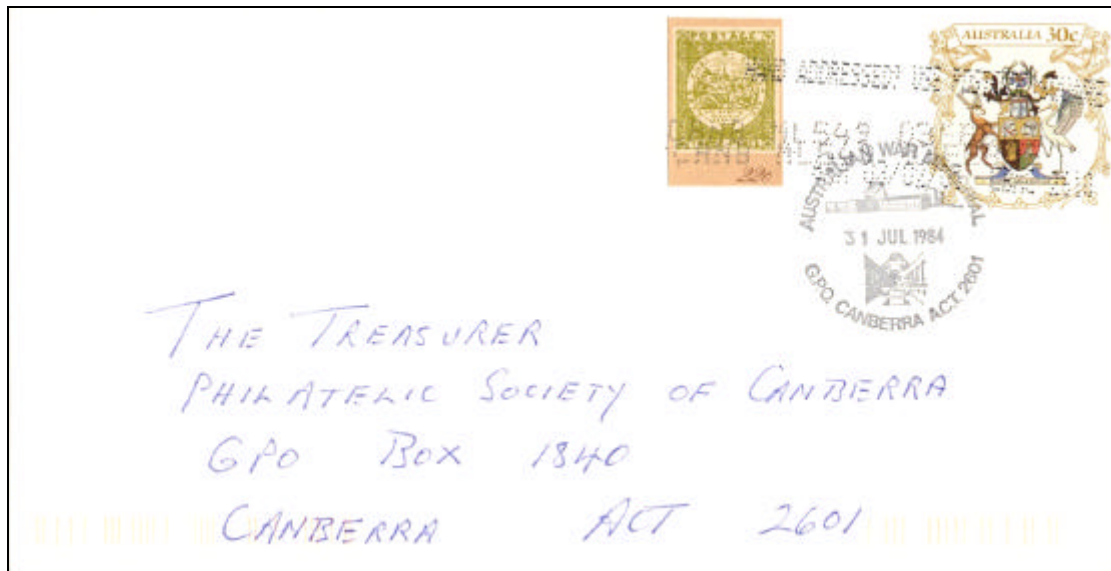 POSTAGE
AUSTRALIA 30c
HAND ADDRESSED?
CANB
22c
AUSTRALIAN WAR MEMORIAL
31 JUL 1984
G.P.O. CANBERRA A.C.T. 2601
THE TREASURER
PHILATELIC SOCIETY OF CANBERRA
GPO BOX 1840
CANBERRA ACT 2601